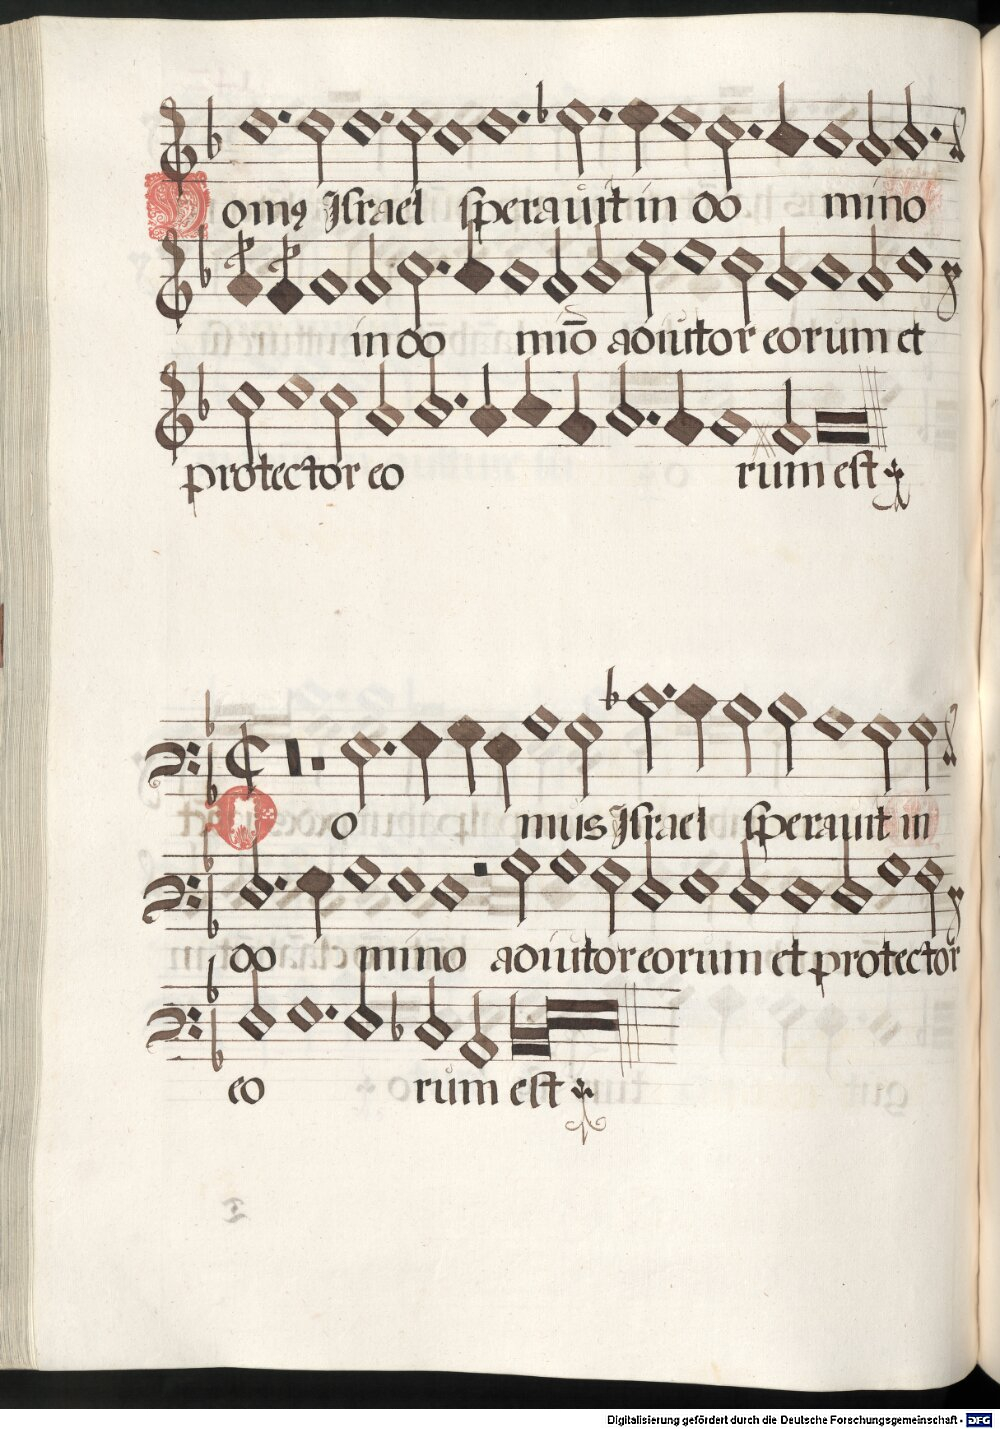 Domꝰ Israel sperauit in do mino
in do mīo adiutor eorum et
protector eo rum est
Do mus Israel sperauit in
do mino adiutor eorum et protector
eo rum est
Digitalisierung gefördert durch die Deutsche Forschungsgemeinschaft - DFG